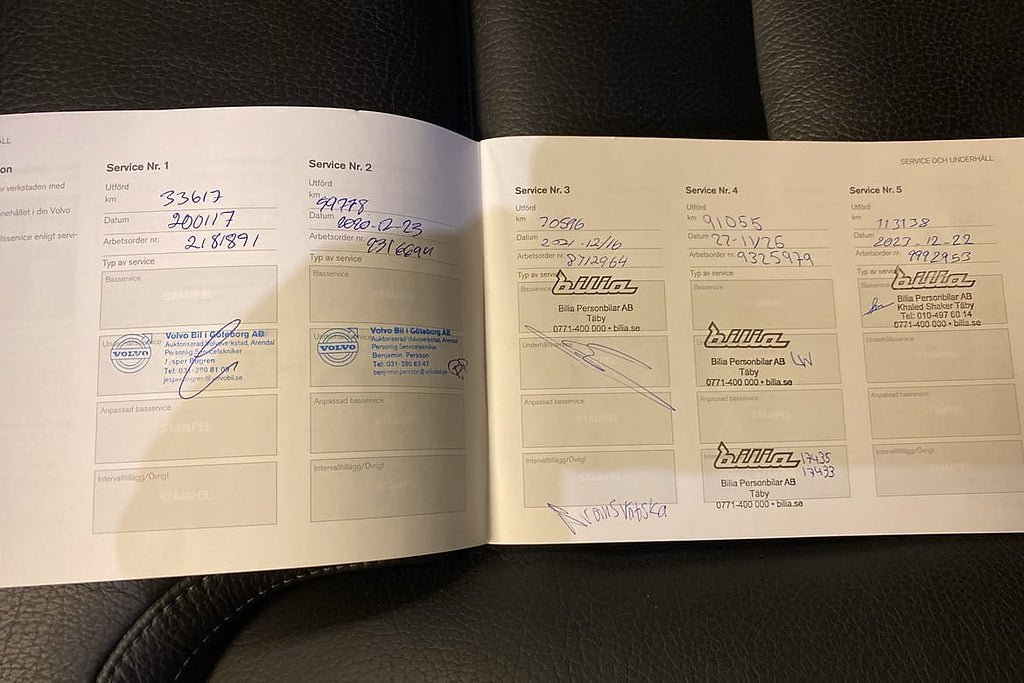 ÅLL
on
v verkstaden med
nehållet i din Volvo
lsservice enligt servi-
Service Nr. 1
Utförd
km 33617
Datum 200117
Arbetsorder nr. 2181891
Typ av service
Basservice
STÄMPEL
VOLVO
Volvo Bil i Göteborg AB
Auktoriserad Volvoverkstad, Arendal
Personlig Servicetekniker
Tel: 031-
Anpassad basservice
STÄMPEL
Intervalltillägg/Övrigt
STÄMPEL
Service Nr. 2
Utförd
km 59778
Datum 2020-12-23
Arbetsorder nr.
Typ av service
Basservice
VOLVO
Volvo Bil i Göteborg AB
Auktoriserad Volvoverkstad, Arendal
Personlig Servicetekniker
Benjamin Persson
Tel: 031-280 83 47
benjamin.persson@volvobil.se
Anpassad basservice
STÄMPEL
Intervalltillägg/Övrigt
SERVICE OCH UNDERHÅLL
Service Nr. 3
Utförd
km 70596
Datum 2021-12/16
Arbetsorder nr. 8712964
Typ av service
Basservice
bilia
Bilia Personbilar AB
Täby
0771-400 000 • bilia.se
Underhållsservice
Anpassad basservice
Intervalltillägg/Övrigt
Service Nr. 4
Utförd
km 91055
Datum 22-11/26
Arbetsorder nr. 9325979
Typ av service
Basservice
bilia
Bilia Personbilar AB
Täby
0771-400 000 • bilia.se
Anpassad basservice
bilia 17435
17433
Bilia Personbilar AB
Täby
0771-400 000 • bilia.se
Service Nr. 5
Utförd
km 113138
Datum 2023-12-22
Arbetsorder nr. 9992953
Typ av servi
bilia
Bilia Personbilar AB
Khaled Shaker Täby
Tel: 010-497 60 14
0771-400 000 • bilia.se
Underhållsservice
Anpassad basservice
Intervalltillägg/Övrigt